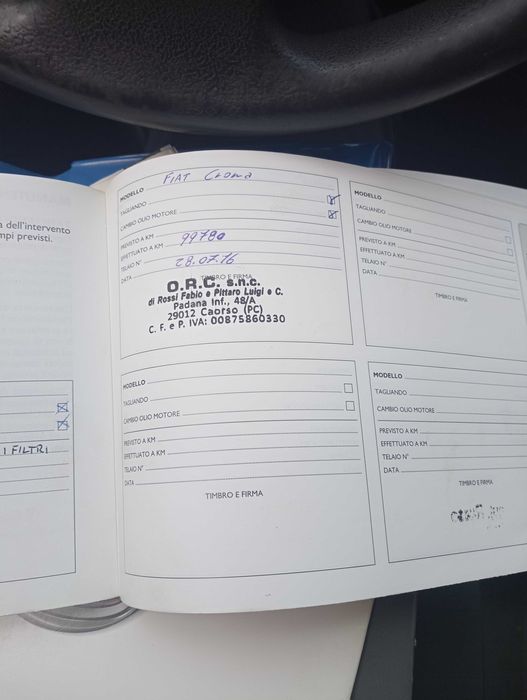 a dell'intervento
mpi previsti.
I FILTRI
MODELLO FIAT CROMA
TAGLIANDO
CAMBIO OLIO MOTORE
PREVISTO A KM
EFFETTUATO A KM 99780
TELAIO N°
DATA 28.07.16
TIMBRO E FIRMA
O.R.C. s.n.c.
di Rossi Fabio e Pittaro Luigi e C.
Padana Inf., 48/A
29012 Caorso (PC)
C. F. e P. IVA: 00875860330
MODELLO
TAGLIANDO
CAMBIO OLIO MOTORE
PREVISTO A KM
EFFETTUATO A KM
TELAIO N°
DATA
TIMBRO E FIRMA
MODELLO
TAGLIANDO
CAMBIO OLIO MOTORE
PREVISTO A KM
EFFETTUATO A KM
TELAIO N°
DATA
TIMBRO E FIRMA
MODELLO
TAGLIANDO
CAMBIO OLIO MOTORE
PREVISTO A KM
EFFETTUATO A KM
TELAIO N°
DATA
TIMBRO E FIRMA